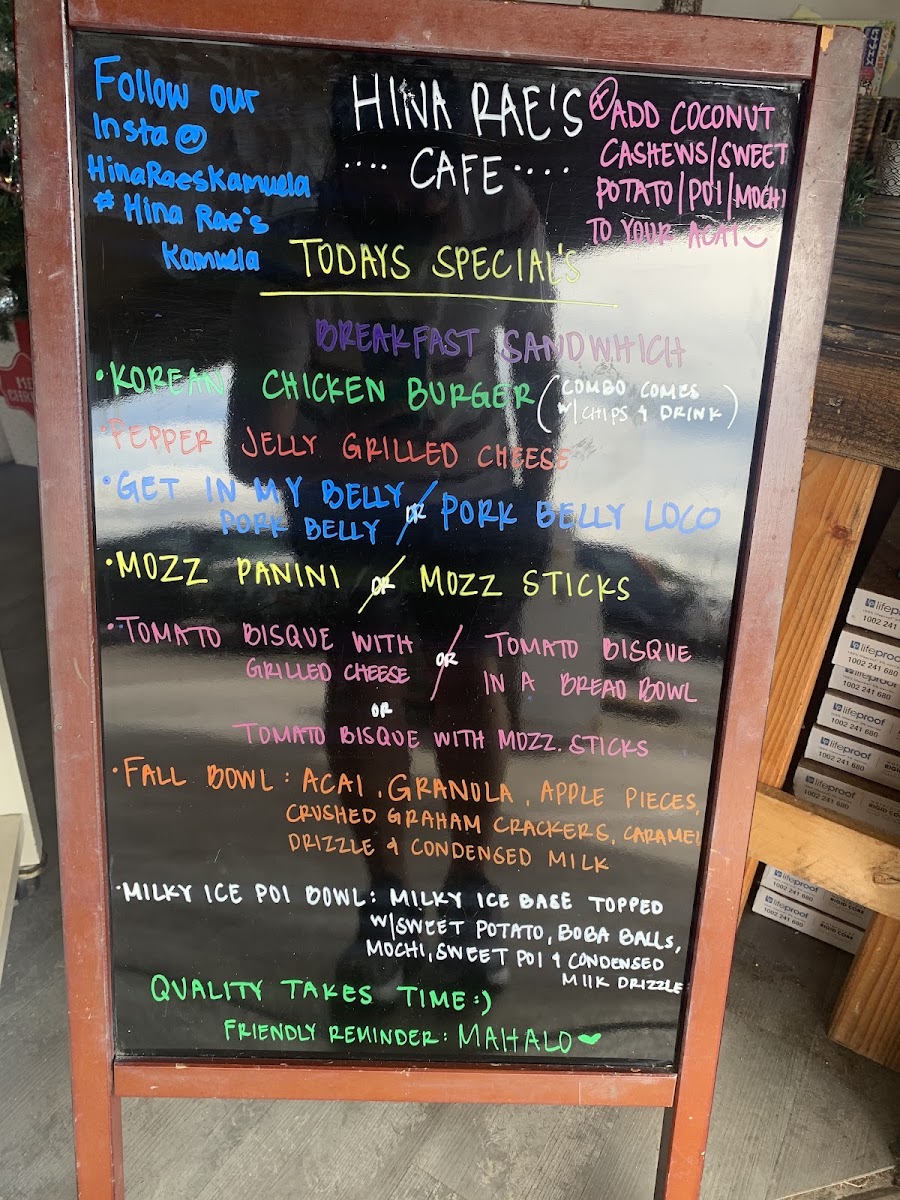 Follow our
Insta@
HinaRaesKamuela
# Hina Rae's
Kamuela
HINA RAE'S
.... CAFE ....
ADD COCONUT
CASHEWS/SWEET
POTATO/POI/MOCHI
TO YOUR ACAI
TODAYS SPECIAL'S
BREAKFAST SANDWHICH
• KOREAN CHICKEN BURGER (COMBO COMES
W/CHIPS & DRINK)
• PEPPER JELLY GRILLED CHEESE
• GET IN MY BELLY
PORK BELLY / OR PORK BELLY LOCO
• MOZZ PANINI / OR MOZZ STICKS
• TOMATO BISQUE WITH
GRILLED CHEESE / OR TOMATO BISQUE
IN A BREAD BOWL
OR
TOMATO BISQUE WITH MOZZ. STICKS
• FALL BOWL: ACAI, GRANOLA, APPLE PIECES,
CRUSHED GRAHAM CRACKERS, CARAMEL
DRIZZLE & CONDENSED MILK
• MILKY ICE POI BOWL: MILKY ICE BASE TOPPED
W/SWEET POTATO, BOBA BALLS,
MOCHI, SWEET POI & CONDENSED
MILK DRIZZLE
QUALITY TAKES TIME:)
FRIENDLY REMINDER: MAHALO ❤
lifeproof
1002 241
lifeproof
1002 241 680
lifeproof
1002 241 680
lifeproof
1002 241 680
lifeproof
1002 241 680
lifeproof
1002 241 680
lifeproof
lifeproof